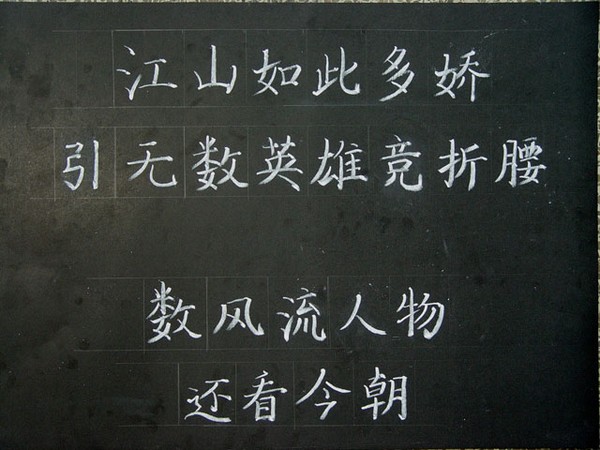 江山如此多娇
引无数英雄竞折腰
数风流人物
还看今朝